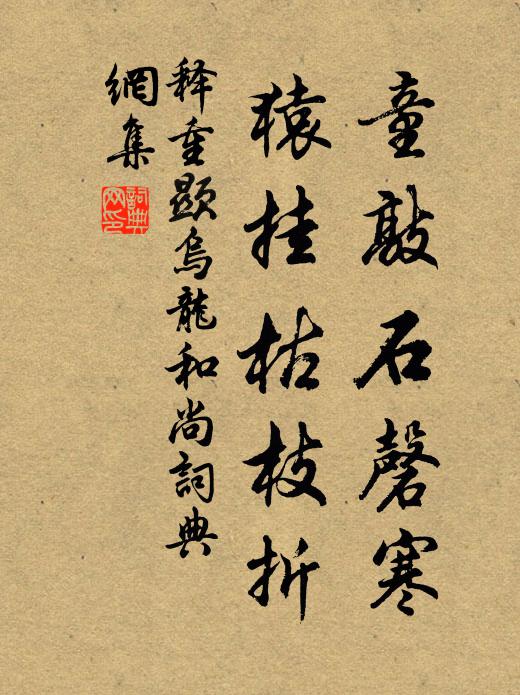 童敲石磬寒
猿挂枯枝折
释重顯烏龍和尚詞典
網集
詞典網印